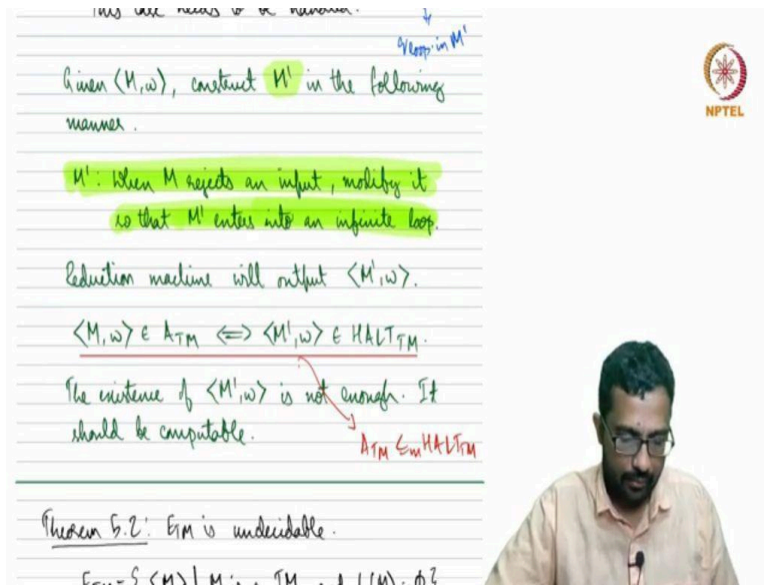 This case needs to be handled.
q loop in M'
Given ⟨M,w⟩, construct M' in the following
manner.
M': When M rejects an input, modify it
so that M' enters into an infinite loop.
Reduction machine will output ⟨M',w⟩.
⟨M,w⟩ ∈ A_TM ⟺ ⟨M',w⟩ ∈ HALT_TM.
The existence of ⟨M',w⟩ is not enough. It
should be computable.
A_TM ≤_m HALT_TM
Theorem 5.2: E_TM is undecidable.
E_TM = { ⟨M⟩ | M is a TM and L(M) = ∅ }
NPTEL